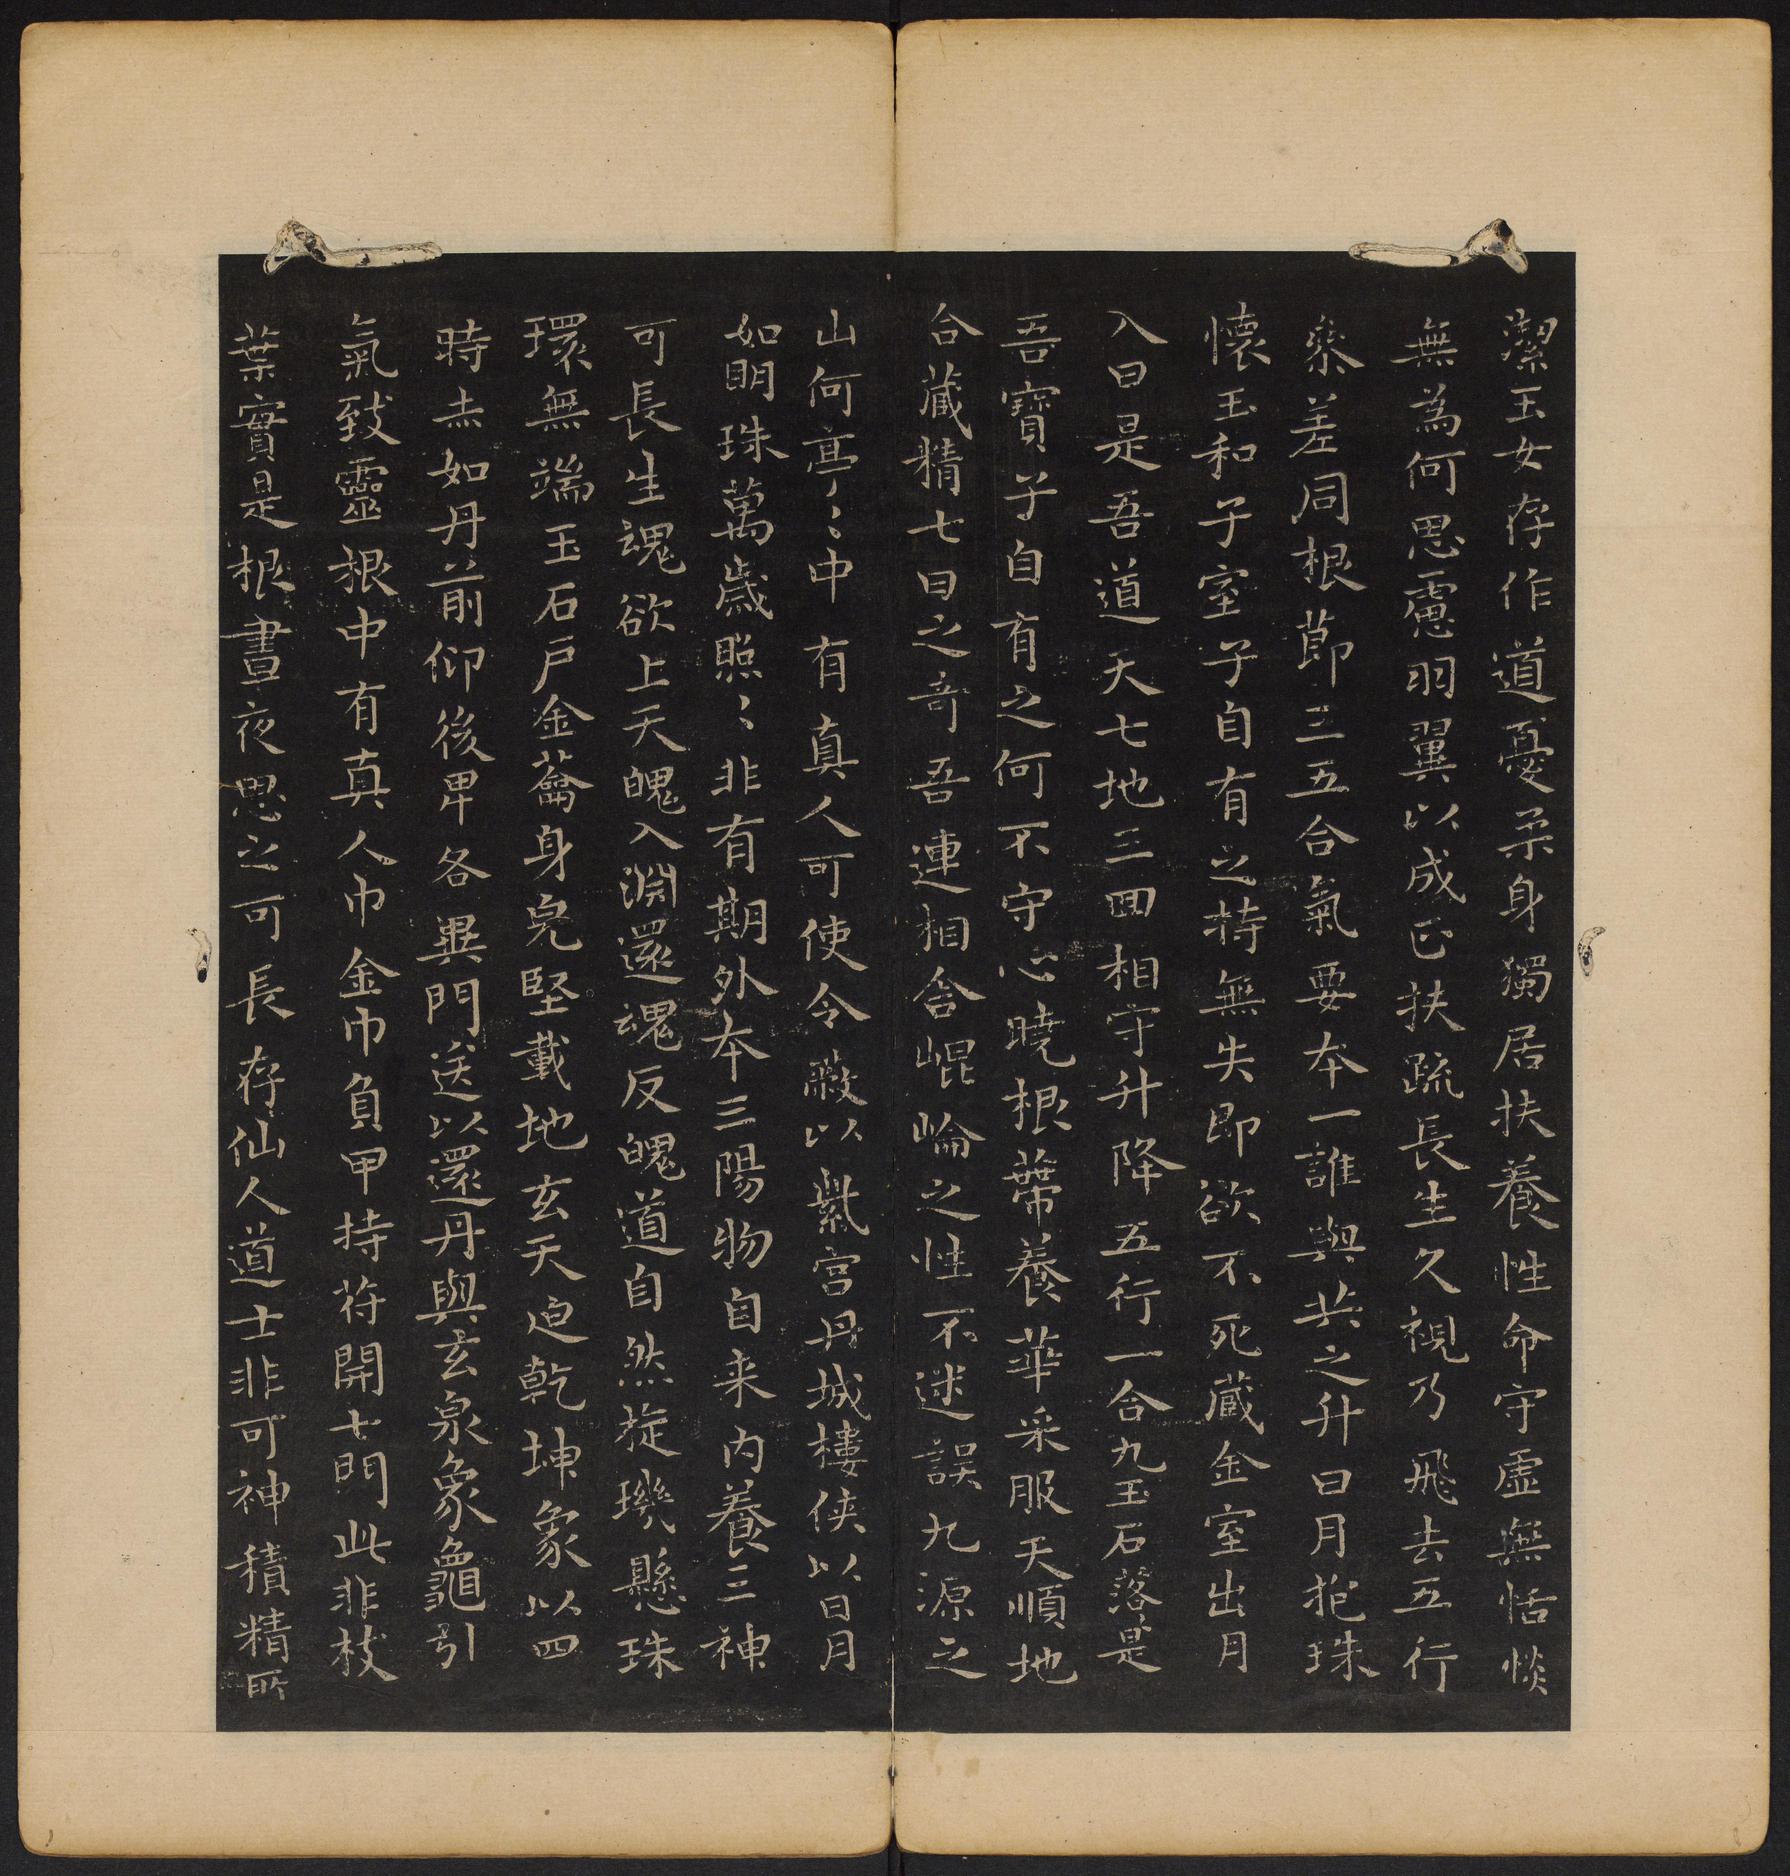 潔玉女存作道憂柔身獨居扶養性命守虛無恬惔
無為何思慮羽翼以成正扶疏長生久視乃飛去五行
參差同根節三五合氣要本一誰與共之升日月抱珠
懷玉和子室子自有之持無失即欲不死藏金室出月
入日是吾道天七地三回相守升降五行一合九玉石落是
吾寶子自有之何不守心曉根蔕養華采服天順地
合藏精七日之奇吾連相舍崐崘之性不迷誤九源之
山何亭〻中有真人可使令蔽以紫宮丹城樓俠以日月
如明珠萬歲照〻非有期外本三陽物自来內養三神
可長生魂欲上天魄入淵還魂反魄道自然旋璣懸珠
環無端玉石戶金蘥身皃堅載地玄天迫乾坤象以四
時赤如丹前仰後卑各異門送以還丹與玄泉象龜引
氣致靈根中有真人巾金巾負甲持苻開七門此非枝
葉實是根晝夜思之可長存仙人道士非可神積精所